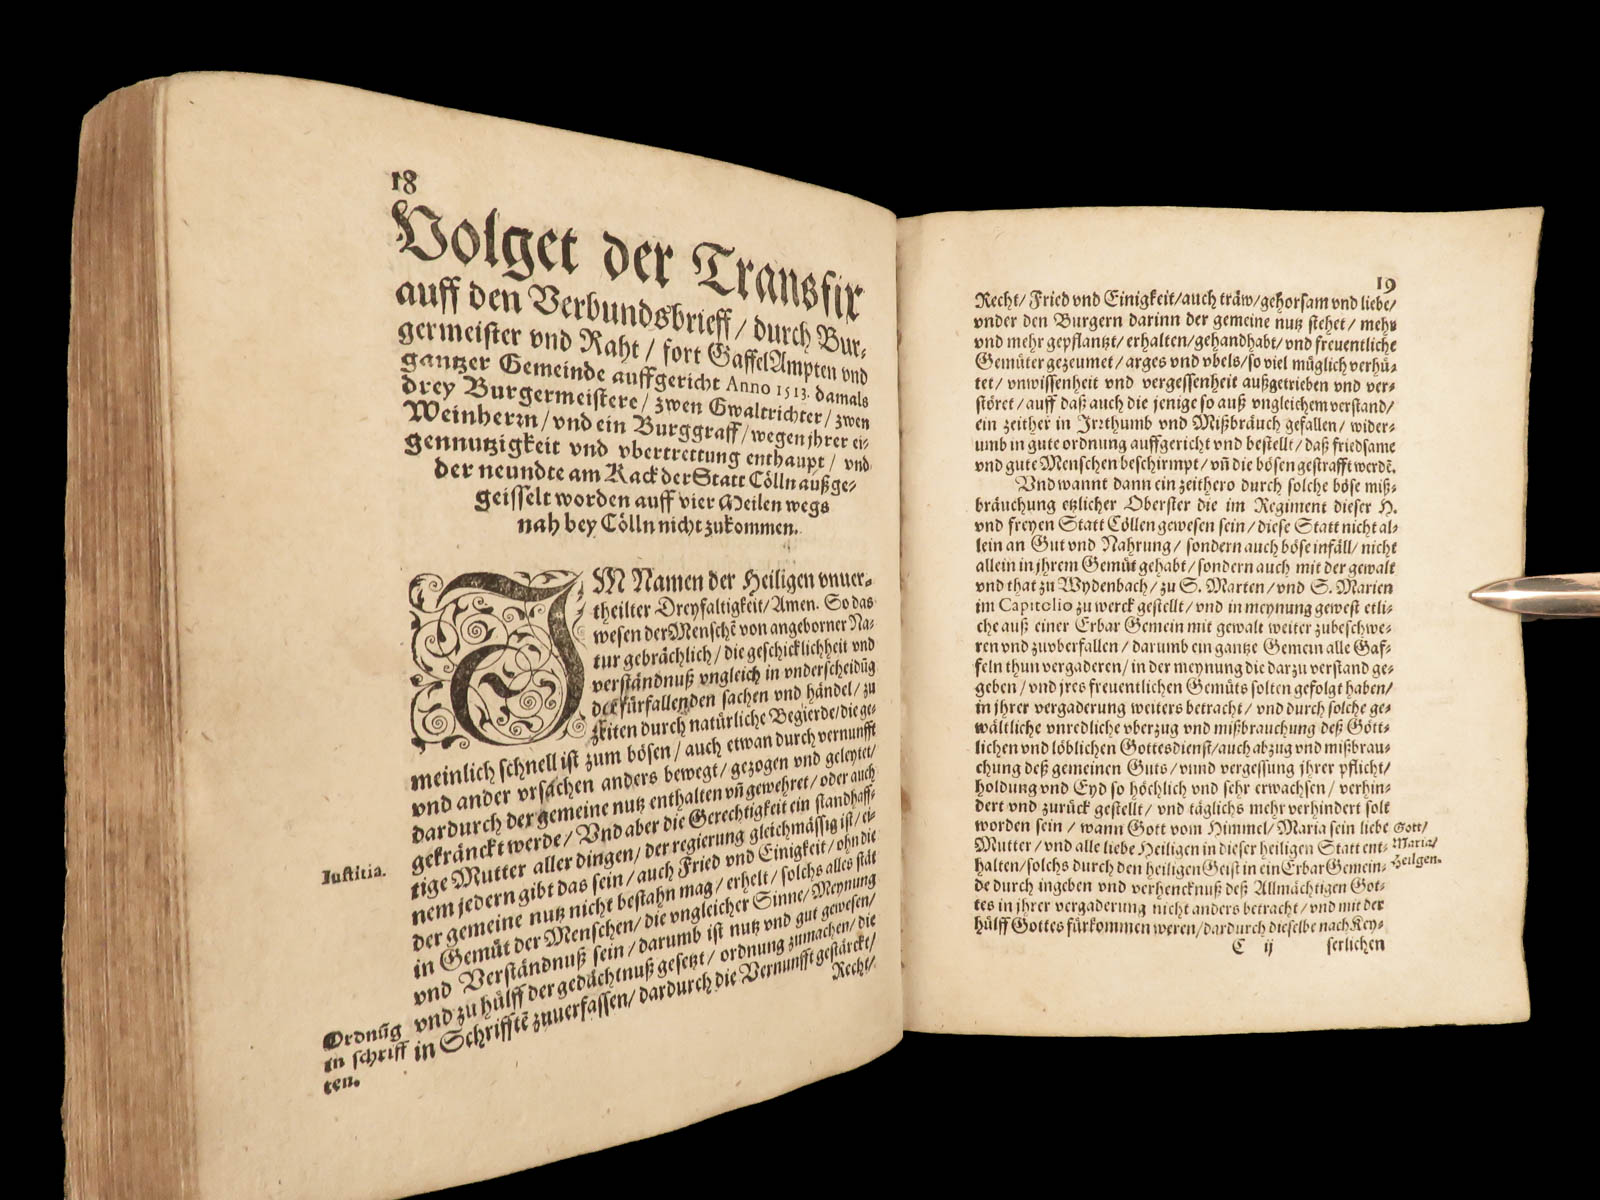 18
Volget der Transfix
auff den Verbundsbrieff / durch Bur-
germeister vnd Raht / fort GaffelAmpten vnd
gantzer Gemeinde auffgericht Anno 1513. damals
drey Burgermeistere / zwen Gwaltrichter / zwen
Weinherrn / vnd ein Burggraff / wegen jhrer ei-
gennutzigkeit vnd vbertrettung enthaupt / vnd
der neundte am Kack der Statt Cölln außge-
geisselt worden auff vier Meilen wegs
nah bey Cölln nicht zukommen.
IM Namen der Heiligen vnuer-
theilter Dreyfaltigkeit / Amen. So das
wesen der Menschẽ von angeborner Na-
tur gebrächlich / die geschicklichheit vnd
verständnuß vngleich in vnderscheidũg
der fürfallenden sachen vnd händel / zu
zeiten durch natürliche Begierde / die ge-
meinlich schnell ist zum bösen / auch etwan durch vernunfft
vnd ander vrsachen anders bewegt / gezogen vnd geleytet /
dardurch der gemeine nutz enthalten vñ gewehret / oder auch
gekränckt werde / Vnd aber die Gerechtigkeit ein standhaff-
tige Mutter aller dingen / der regierung gleichmässig ist / ei-
nem jedern gibt das sein / auch Fried vnd Einigkeit / ohn die
der gemeine nutz nicht bestahn mag / erhelt / solchs alles stät
in Gemüt der Menschen / die vngleicher Sinne / Meynung
vnd Verständnuß sein / darumb ist nutz vnd gut gewesen /
vnd zu hülff der gedächtnuß gesetzt / ordnung zumachen / die
in Schrifftẽ zuuerfassen / dardurch die Vernunfft gestärckt /
Recht /
Iustitia.
Ordnũg
in schriff
ten.
19
Recht / Fried vnd Einigkeit / auch träw / gehorsam vnd liebe /
vnder den Burgern darinn der gemeine nutz stehet / mehr
vnd mehr gepflantzt / erhalten / gehandhabt / vnd freuentliche
Gemüter gezeumet / arges vnd vbels / so viel müglich verhü-
tet / vnwissenheit vnd vergessenheit außgetrieben vnd ver-
störet / auff daß auch die jenige so auß vngleichem verstand /
ein zeither in Jrrthumb vnd Mißbräuch gefallen / wider-
umb in gute ordnung auffgericht vnd bestellt / daß friedsame
vnd gute Menschen beschirmpt / vñ die bösen gestrafft werdẽ.
Vnd wannt dann ein zeithero durch solche böse miß-
bräuchung etzlicher Oberster die im Regiment dieser H.
vnd freyen Statt Cöllen gewesen sein / diese Statt nicht al-
lein an Gut vnd Nahrung / sondern auch böse infäll / nicht
allein in jhrem Gemüt gehabt / sondern auch mit der gewalt
vnd that zu Wydenbach / zu S. Marten / vnd S. Marien
im Capitolio zu werck gestellt / vnd in meynung gewest etli-
che auß einer Erbar Gemein mit gewalt weiter zubeschwe-
ren vnd zuvberfallen / darumb ein gantze Gemein alle Gaf-
feln thun vergaderen / in der meynung die darzu verstand ge-
geben / vnd jres freuentlichen Gemüts solten gefolgt haben /
in jhrer vergaderung weiters betracht / vnd durch solche ge-
wältliche vnredliche vberzug vnd mißbrauchung deß Gött-
lichen vnd löblichen Gottesdienst / auch abzug vnd mißbrau-
chung deß gemeinen Guts / vnnd vergessung jhrer pflicht /
holdung vnd Eyd so höchlich vnd sehr erwachsen / verhin-
dert vnd zurück gestellt / vnd täglichs mehr verhindert solt
worden sein / wann Gott vom Himmel / Maria sein liebe
Mutter / vnd alle liebe Heiligen in dieser heiligen Statt ent-
halten / solchs durch den heiligen Geist in ein Erbar Gemein-
de durch ingeben vnd verhencknuß deß Allmächtigen Got-
tes in jhrer vergaderung nicht anders betracht / vnd mit der
hülff Gottes fürkommen weren / dardurch dieselbe nach Key-
C ij serlichen
Gott /
Maria /
Heilgen.